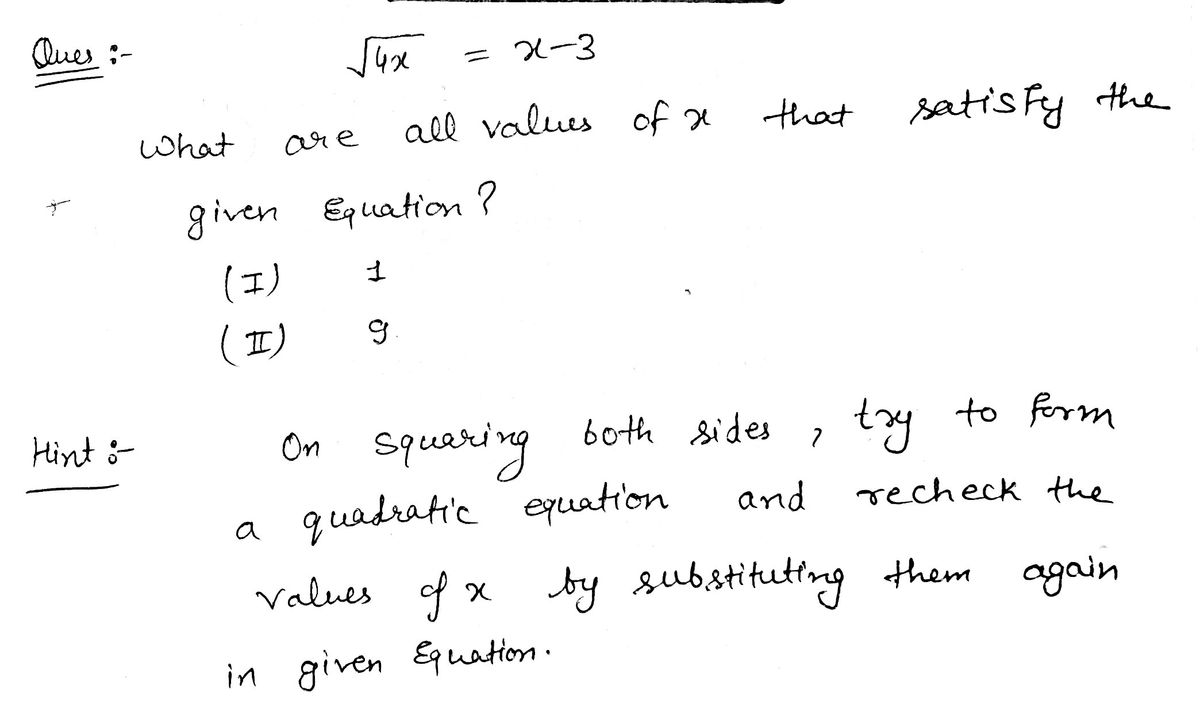 Ques :-
√4x = x-3
What are all values of x that satisfy the
given Equation?
(I) 1
(II) 9
Hint :-
On squaring both sides, try to form
a quadratic equation and recheck the
values of x by substituting them again
in given Equation.